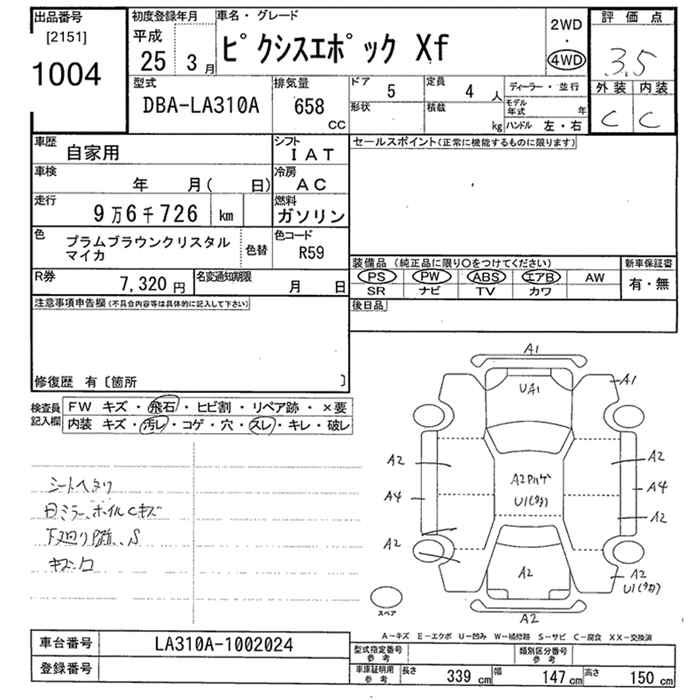 出品番号
[2151]
1004
初度登録年月
平成
25 3月
車名・グレード
ピクシスエポック Xf
2WD
・
4WD
評価点
3.5
外装 内装
C C
型式
DBA-LA310A
排気量
658
CC
ドア 5
定員 4 人
ディーラー・並行
形状
積載 kg
モデル年式 年
ハンドル 左・右
車歴
自家用
シフト
IAT
セールスポイント(正常に機能するものに限ります)
車検
年 月( 日)
冷房
AC
走行
9万6千726 km
燃料
ガソリン
色
プラムブラウンクリスタル
マイカ
色替
色コード
R59
装備品(純正品に限り○をつけてください)
新車保証書
PS PW ABS エアB AW
SR ナビ TV カワ
有・無
R券
7,320円
名変通知期限
月 日
後日品
注意事項申告欄(不具合内容等は具体的に記入して下さい)
修復歴 有〔箇所 〕
検査員
記入欄
FW キズ・飛石・ヒビ割・リペア跡・×要
内装 キズ・汚レ・コゲ・穴・スレ・キレ・破レ
シートヘタリ
ミラー、ホイルCキズ
S
A1
UA1
A1
A2
A4
A2
A2
U1
A2
A4
A2
A2
A2
U1
A2
スペア
A-キズ E-エクボ U-凹み W-補修跡 S-サビ C-腐食 XX-交換済
車台番号
LA310A-1002024
登録番号
型式指定番号
参考
類別区分番号
参考
車庫証明用
参考
長さ 339 cm
幅 147 cm
高さ 150 cm